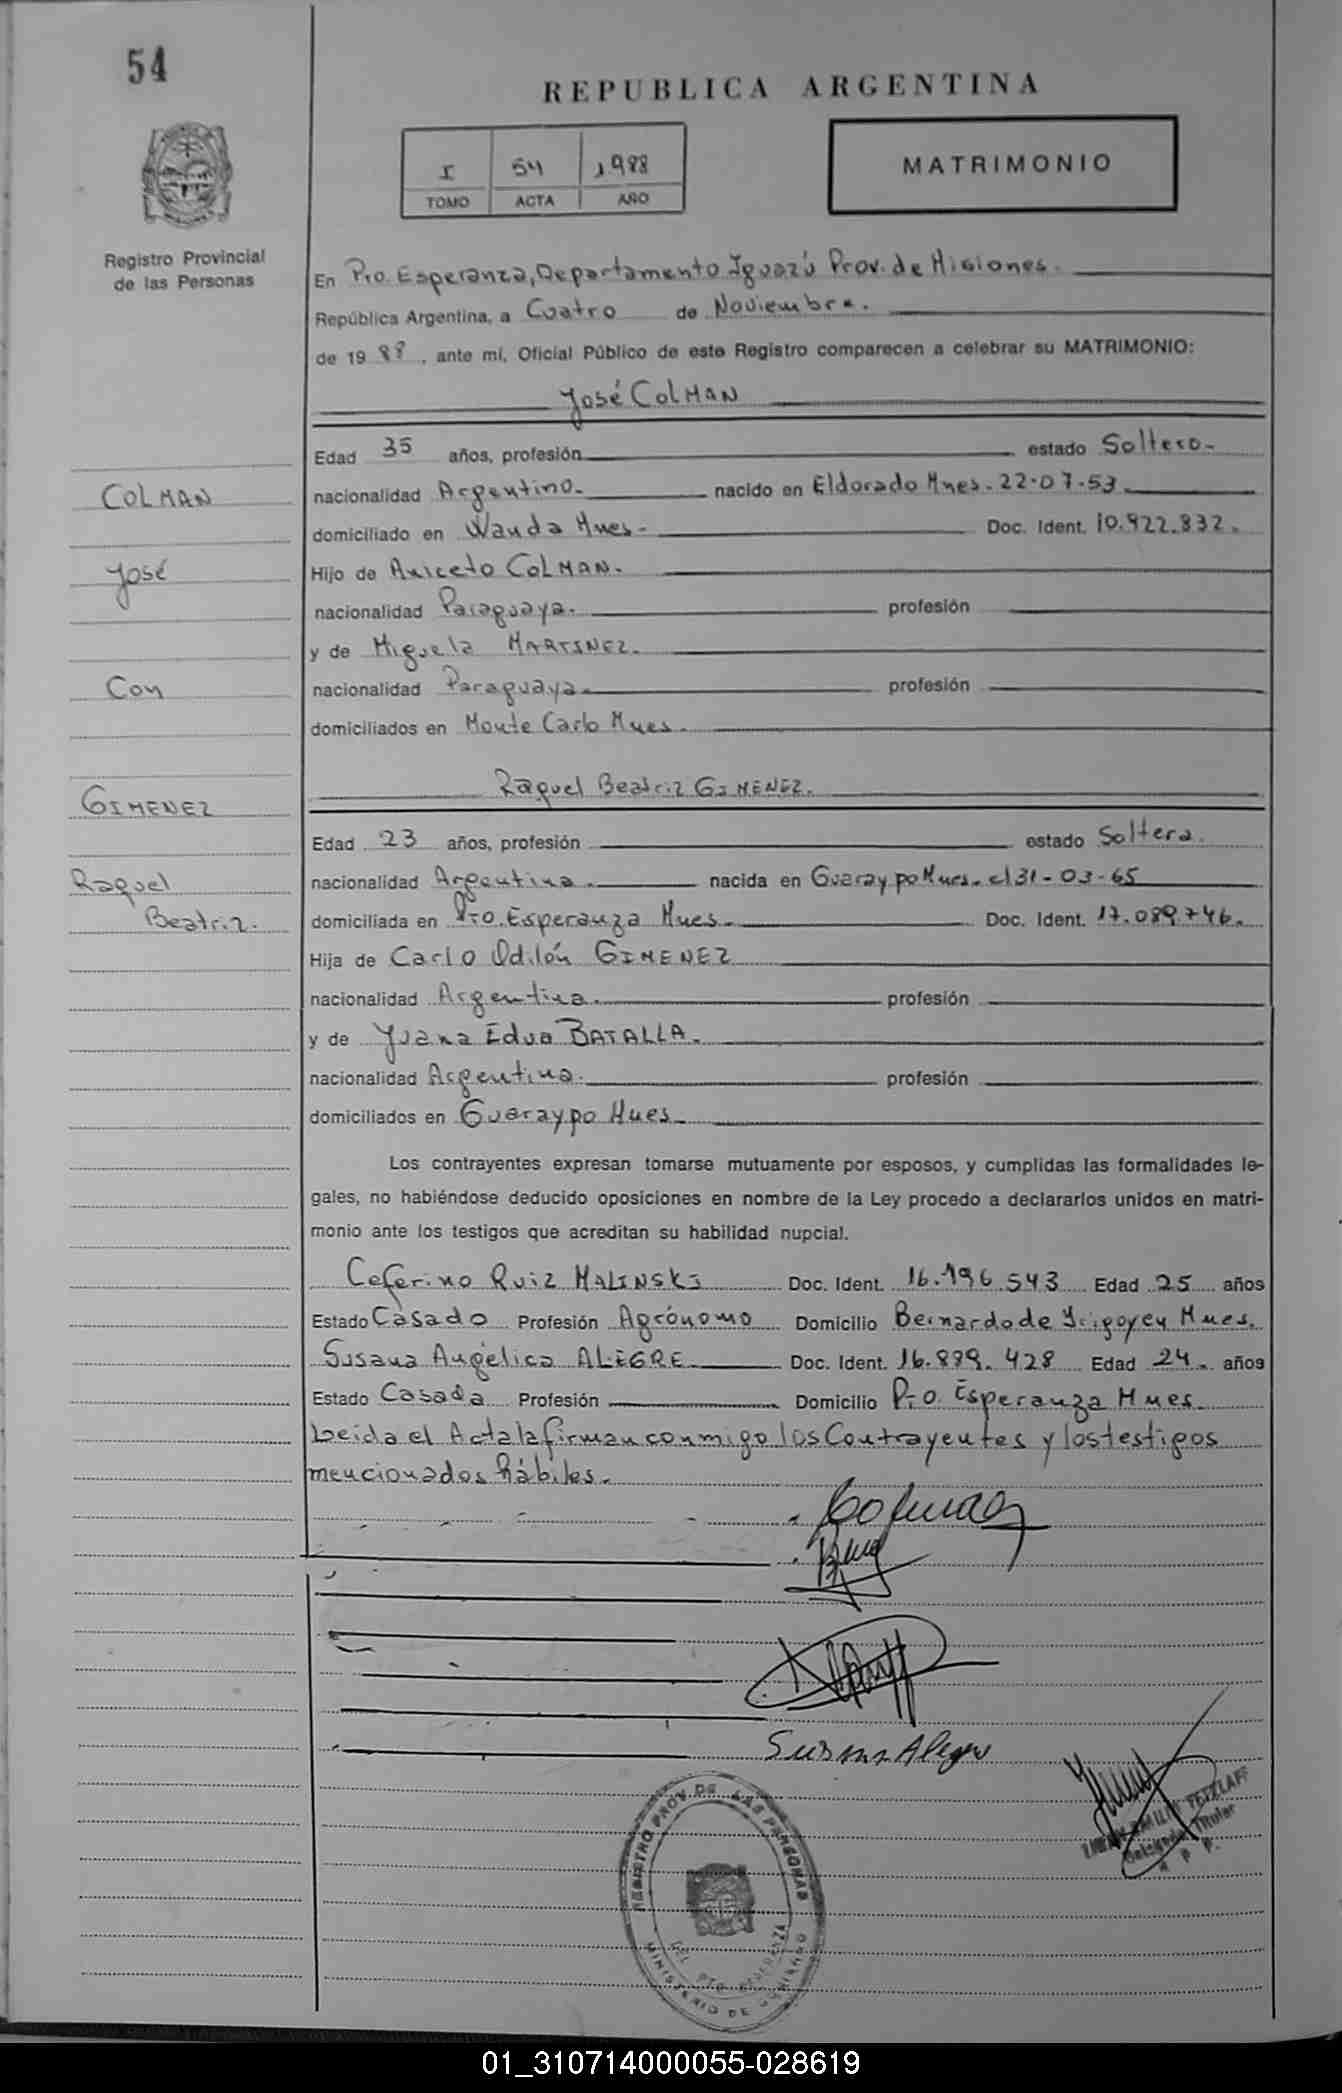 54
REPUBLICA ARGENTINA
I 54 1.988
TOMO ACTA AÑO
MATRIMONIO
Registro Provincial
de las Personas
En Pto. Esperanza, Departamento Iguazú Prov. de Misiones.
República Argentina, a Cuatro de Noviembre.
de 19 88, ante mí, Oficial Público de este Registro comparecen a celebrar su MATRIMONIO:
José COLMAN
Edad 35 años, profesión estado Soltero.
COLMAN
nacionalidad Argentino. nacido en Eldorado Mnes. 22-07-53
domiciliado en Wanda Mnes. Doc. Ident. 10.922.832.
José
Hijo de Aniceto COLMAN.
nacionalidad Paraguaya. profesión
y de Miguela MARTINEZ.
Con
nacionalidad Paraguaya. profesión
domiciliados en Monte Carlo Mnes.
GIMENEZ
Raquel Beatriz GIMENEZ.
Edad 23 años, profesión estado Soltera.
Raquel
nacionalidad Argentina. nacida en Guaraypo Mnes. el 31-03-65
Beatriz.
domiciliada en Pto. Esperanza Mnes. Doc. Ident. 17.089.746.
Hija de Carlo Odilón GIMENEZ
nacionalidad Argentina. profesión
y de Juana Edua BATALLA.
nacionalidad Argentina. profesión
domiciliados en Guaraypo Mnes.
Los contrayentes expresan tomarse mutuamente por esposos, y cumplidas las formalidades le-
gales, no habiéndose deducido oposiciones en nombre de la Ley procedo a declararlos unidos en matri-
monio ante los testigos que acreditan su habilidad nupcial.
Ceferino Ruiz MALINSKI Doc. Ident. 16.196.543 Edad 25 años
Estado Casado Profesión Agrónomo Domicilio Bernardo de Irigoyen Mnes.
Susana Angélica ALEGRE. Doc. Ident. 16.899.428 Edad 24. años
Estado Casada Profesión Domicilio Pto. Esperanza Mnes.
Leida el Acta la firman conmigo los Contrayentes y los testigos
mencionados hábiles.
Susana Alegre
REGISTRO PROV. DE LAS PERSONAS
DEL. PTO. ESPERANZA
MINISTERIO DE GOBIERNO
Delegada Titular
01_310714000055-028619